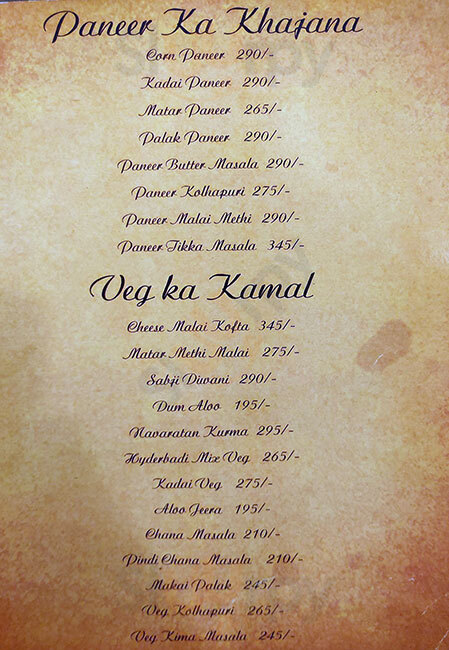 Paneer Ka Khajana
Corn Paneer 290/-
Kadai Paneer 290/-
Matar Paneer 265/-
Palak Paneer 290/-
Paneer Butter Masala 290/-
Paneer Kolhapuri 275/-
Paneer Malai Methi 290/-
Paneer Tikka Masala 345/-
Veg ka Kamal
Cheese Malai Kofta 345/-
Matar Methi Malai 275/-
Sabji Diwani 290/-
Dum Aloo 195/-
Navaratan Kurma 295/-
Hyderbadi Mix Veg 265/-
Kadai Veg 275/-
Aloo Jeera 195/-
Chana Masala 210/-
Pindi Chana Masala 210/-
Makai Palak 245/-
Veg Kolhapuri 265/-
Veg Kima Masala 245/-